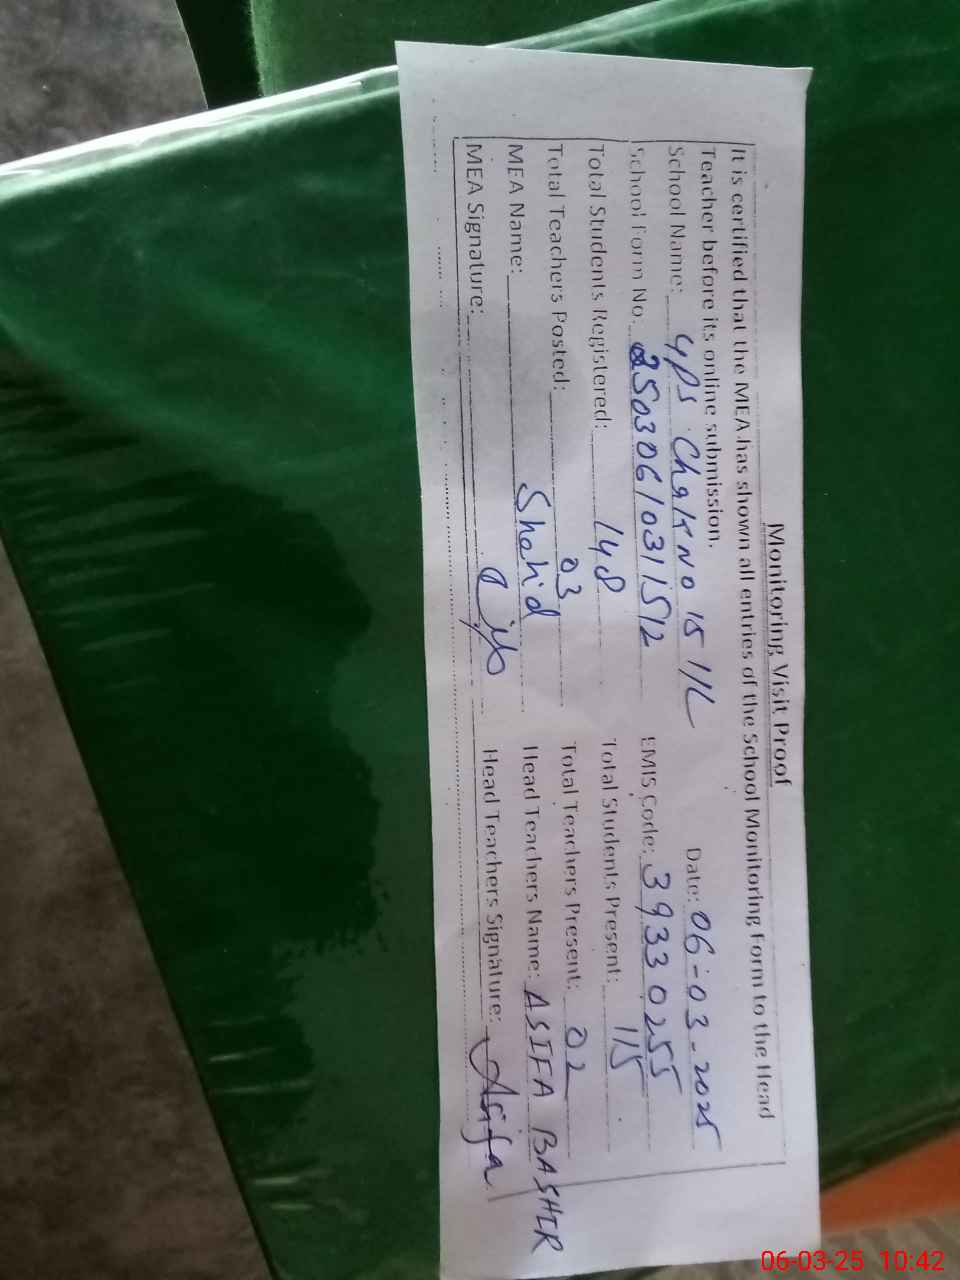 Monitoring Visit Proof
It is certified that the MEA has shown all entries of the School Monitoring Form to the Head
Teacher before its online submission.
Date: 06-03-2025
School Name: GPS Chak No 15 1/L
School Form No. 25030610311512 EMIS Code: 39330255
Total Students Registered: 148 Total Students Present: 115
Total Teachers Posted: 03 Total Teachers Present: 02
MEA Name: Shahid Head Teachers Name: ASIFA BASHIR
MEA Signature: Head Teachers Signature: Asifa
06-03-25 10:42